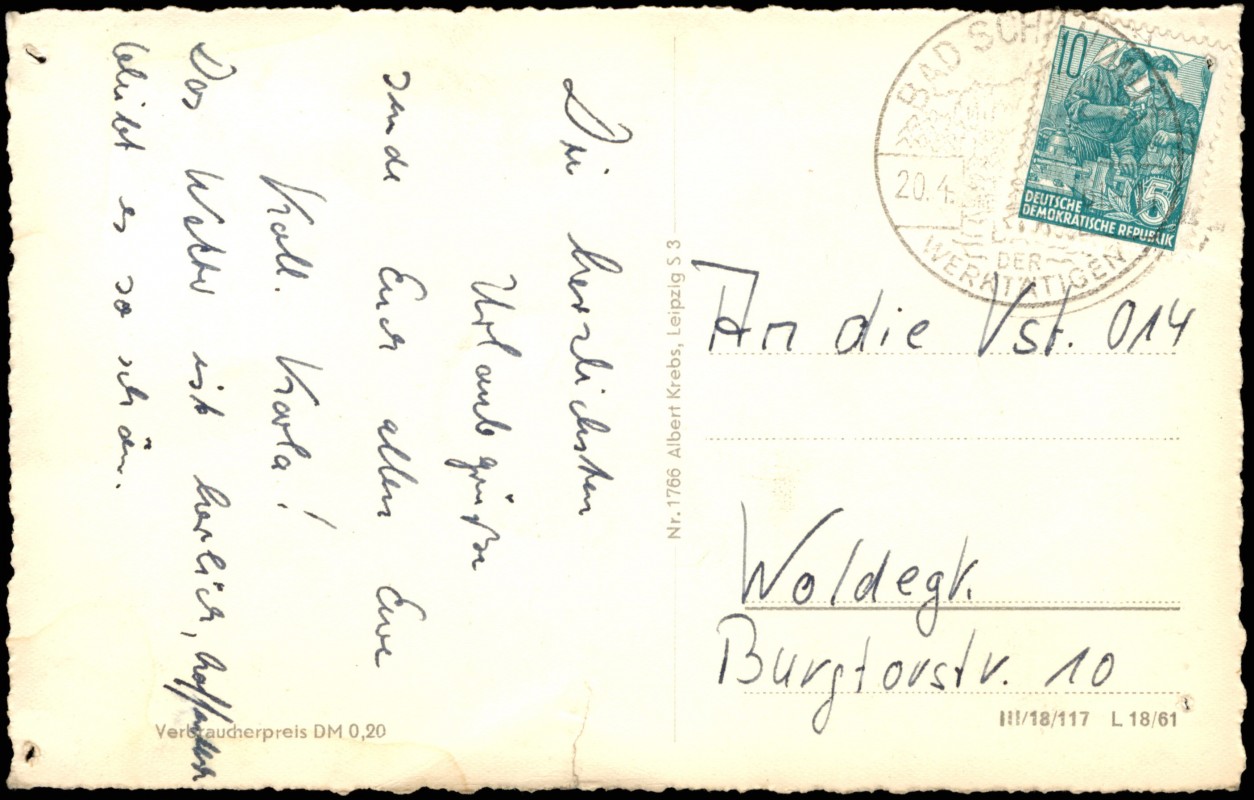 Die herzlichsten
Urlaubgrüße
sende Euch allen Eure
Koll. Karla!
Das Wetter ist herlich, hoffentlich
bleibt es so schön.
Verbraucherpreis DM 0,20
Nr. 1766 Albert Krebs, Leipzig S 3
BAD SCHANDAU
20.4.
DER
WERKTÄTIGEN
10
5
DEUTSCHE
DEMOKRATISCHE REPUBLIK
An die Vst. 014
Woldegk.
Burgtorstr. 10
III/18/117 L 18/61